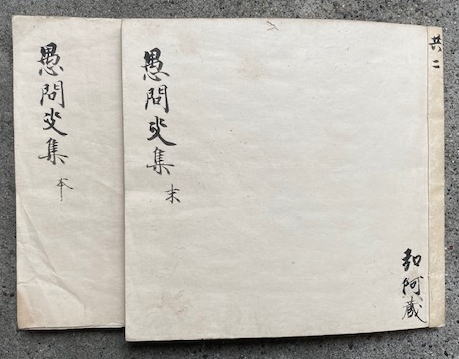 共二
弘阿蔵
愚問集 末
愚問集 本